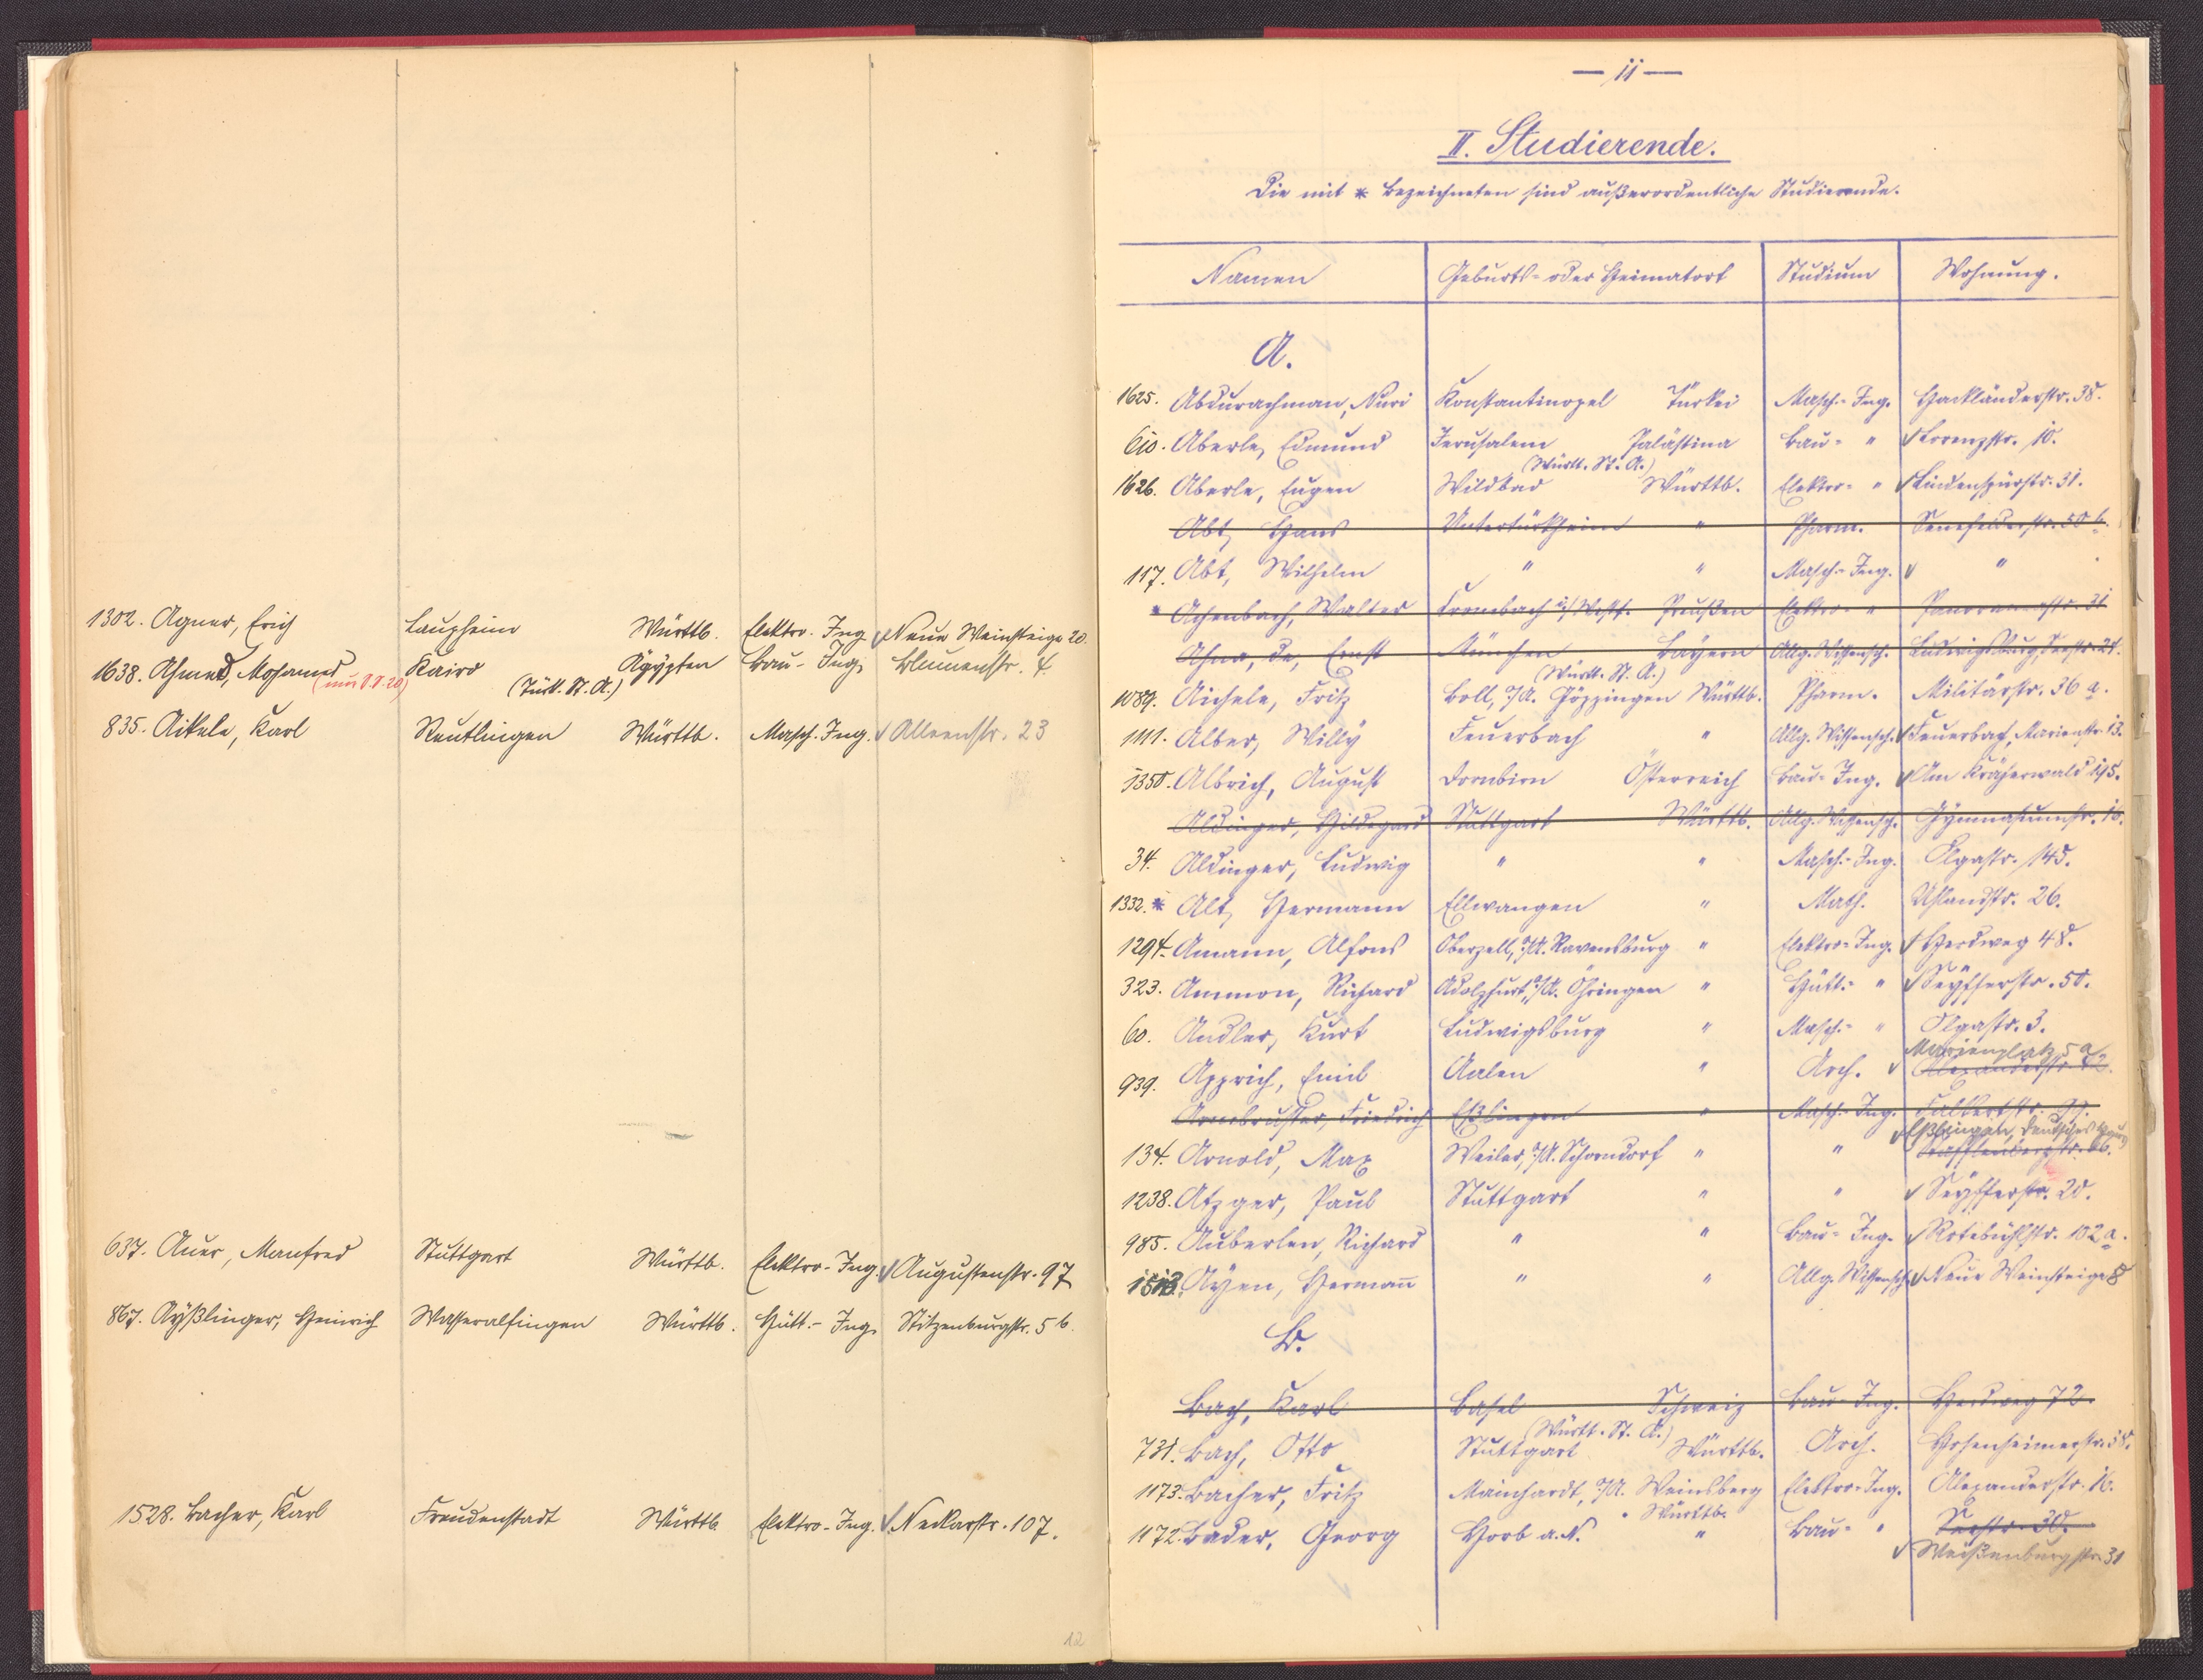 1302. Agner, Erich Laupheim Württb. Elektro. Ing. √ Neue Weinsteige 20.
1638. Ahmed, Mohamed Kairo Ägypten Bau- Ing. Blumenstr. 4.
(Türk. St. A.)
835. Aikele, Karl Reutlingen Württb. Masch. Ing. √ Alleenstr. 23
637. Auer, Manfred Stuttgart Württb. Elektro-Ing. √ Augustenstr. 97
867. Ayßlinger, Heinrich Wasseralfingen Württb. Hütt.- Ing. Stitzenburgstr. 5 b.
1528. Bacher, Karl Freudenstadt Württb. Elektro-Ing. √ Neckarstr. 107.
12
— 11 —
II. Studierende.
Die mit * bezeichneten sind außerordentliche Studierende.
Namen Geburts- oder Heimatort Studium Wohnung.
A.
1625. Abdurachman, Nuri Konstantinopel Türkei Masch.-Ing. Hackländerstr. 38.
610. Aberle, Edmund Jerusalem Palästina Bau- " √ Lorenzstr. 10.
(Württ. St. A.)
1626. Aberle, Eugen Wildbad Württb. Elektro- " √ Lindenspürstr. 31.
Abt, Hans Untertürkheim " Pharm. Senefelderstr. 50 b.
117. Abt, Wilhelm " " Masch-Ing. √ "
* Achenbach, Walter Crombach i/Westf. Preußen Elektro- " Panoramastr. 31
Ahna, de, Ernst München Bayern Allg. Wissensch. Ludwigsburg, Seestr. 21.
(Württ. St. A.)
1089. Aichele, Fritz Boll, O/A. Göppingen Württb. Pharm. Militärstr. 36 a.
1111. Alber, Willy Feuerbach " Allg. Wissensch. √ Feuerbach, Marienstr. 13.
1350. Albrich, August Dornbirn Österreich Bau-Ing. √ Am Kräherwald 195.
Aldinger, Hildegard Stuttgart Württb. Allg. Wissensch. Gymnasiumstr. 16.
34. Aldinger, Ludwig " " Masch.-Ing. Olgastr. 145.
1332. * Alt, Hermann Ellwangen " Math. Uhlandstr. 26.
1294. Amann, Alfons Oberzell, O/A. Ravensburg " Elektro-Ing. √ Herdweg 48.
323. Ammon, Richard Adolzfurt, O/A. Öhringen " Hütt.- " √ Seyfferstr. 50.
60. Andler, Kurt Ludwigsburg " Masch.- " Olgastr. 3.
Marienplatz 5 a/2
939. Apprich, Emil Aalen " Arch. √ Alexanderstr.
Armbruster, Friedrich Eßlingen " Masch.-Ing. Falkertstr. 99.
√ Eßlingen, Deutsches
134. Arnold, Max Weiler, O/A. Schorndorf " " Stafflenbergstr. 66.
1238. Atzger, Paul Stuttgart " " √ Seyfferstr. 20.
985. Auberlen, Richard " " Bau-Ing. √ Rotebühlstr. 102 a.
1513. Ayen, Hermann " " Allg. Wissensch. √ Neue Weinsteige 8
B.
Bach, Karl Basel Schweiz Bau-Ing. Herdweg 72.
(Württ. St. A.)
731. Bach, Otto Stuttgart Württb. Arch. Hohenheimerstr. 58.
1173. Bacher, Fritz Mainhardt, O/A. Weinsberg Elektro-Ing. Alexanderstr. 16.
Württb.
1172. Bader, Georg Horb a. N. " Bau- " Seestr. 30.
√ Weißenburgstr. 31